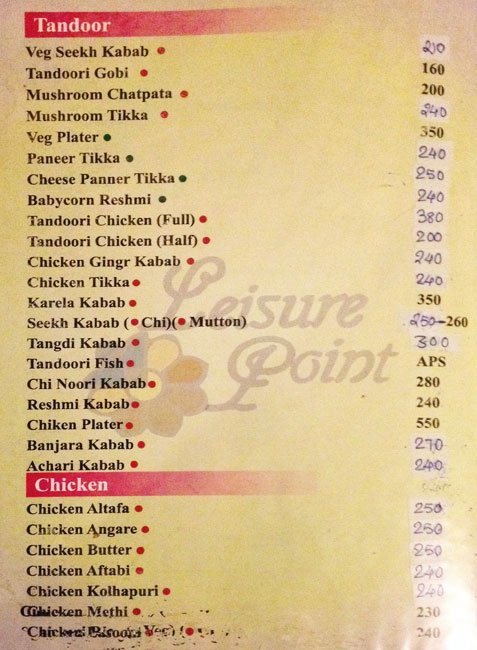 Tandoor
Veg Seekh Kabab 210
Tandoori Gobi 160
Mushroom Chatpata 200
Mushroom Tikka 240
Veg Plater 350
Paneer Tikka 240
Cheese Panner Tikka 250
Babycorn Reshmi 240
Tandoori Chicken (Full) 380
Tandoori Chicken (Half) 200
Chicken Gingr Kabab 240
Chicken Tikka 240
Karela Kabab 350
Seekh Kabab ( Chi)( Mutton) 250-260
Tangdi Kabab 300
Tandoori Fish APS
Chi Noori Kabab 280
Reshmi Kabab 240
Chiken Plater 550
Banjara Kabab 270
Achari Kabab 240
Leisure
Point
Chicken
Chicken Altafa 250
Chicken Angare 250
Chicken Butter 250
Chicken Aftabi 240
Chicken Kolhapuri 240
Chicken Methi 230
240